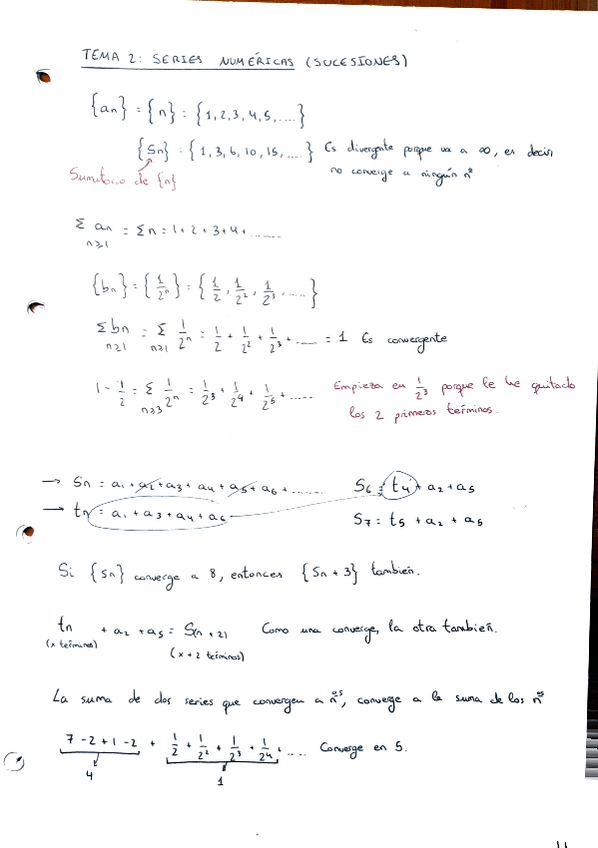 TEMA 2: SERIES NUMÉRICAS (SUCESIONES)
{an} = {n} = {1, 2, 3, 4, 5, ....}
{Sn} = {1, 3, 6, 10, 15, ....} Es divergente porque va a ∞, es decir
no converge a ningún nº
Sumatorio de {n}
Σ an = Σn = 1 + 2 + 3 + 4 + .......
n≥1
{bn} = {1/2^n} = {1/2, 1/2^2, 1/2^3, .....}
Σ bn = Σ 1/2^n = 1/2 + 1/2^2 + 1/2^3 + ..... = 1 Es convergente
n≥1 n≥1
1 - 1/2 = Σ 1/2^n = 1/2^3 + 1/2^4 + 1/2^5 + ...... Empieza en 1/2^3 porque le he quitado
n≥3 los 2 primeros términos.
→ Sn = a1 + a2 + a3 + a4 + a5 + a6 + ....... S6 = t4 + a2 + a5
→ tn = a1 + a3 + a4 + a6 S7 = t5 + a2 + a5
Si {Sn} converge a 8, entonces {Sn + 3} también.
tn + a2 + a5 = S(n + 2) Como una converge, la otra también.
(x términos) (x + 2 términos)
La suma de dos series que convergen a nºs, converge a la suma de los nºs
7 - 2 + 1 - 2 + 1/2 + 1/2^2 + 1/2^3 + 1/2^4 + .... Converge en 5.
4 1